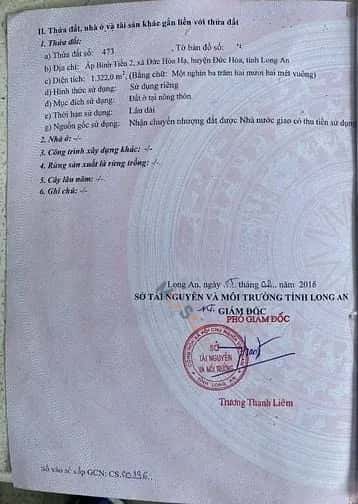 II. Thửa đất, nhà ở và tài sản khác gắn liền với thửa đất
1. Thửa đất:
a) Thửa đất số: 473 , Tờ bản đồ số:
b) Địa chỉ: Ấp Bình Tiền 2, xã Đức Hòa Hạ, huyện Đức Hòa, tỉnh Long An
c) Diện tích: 1.322,0 m², (Bằng chữ: Một nghìn ba trăm hai mươi hai mét vuông)
d) Hình thức sử dụng: Sử dụng riêng
đ) Mục đích sử dụng: Đất ở tại nông thôn
e) Thời hạn sử dụng: Lâu dài
g) Nguồn gốc sử dụng: Nhận chuyển nhượng đất được Nhà nước giao có thu tiền sử dụng
2. Nhà ở: -/-
3. Công trình xây dựng khác: -/-
4. Rừng sản xuất là rừng trồng: -/-
5. Cây lâu năm: -/-
6. Ghi chú: -/-
Long An, ngày tháng năm 2016
SỞ TÀI NGUYÊN VÀ MÔI TRƯỜNG TỈNH LONG AN
KT. GIÁM ĐỐC
PHÓ GIÁM ĐỐC
SỞ
TÀI NGUYÊN
VÀ MÔI TRƯỜNG
TỈNH LONG AN
Trương Thanh Liêm
Số vào sổ cấp GCN: CS